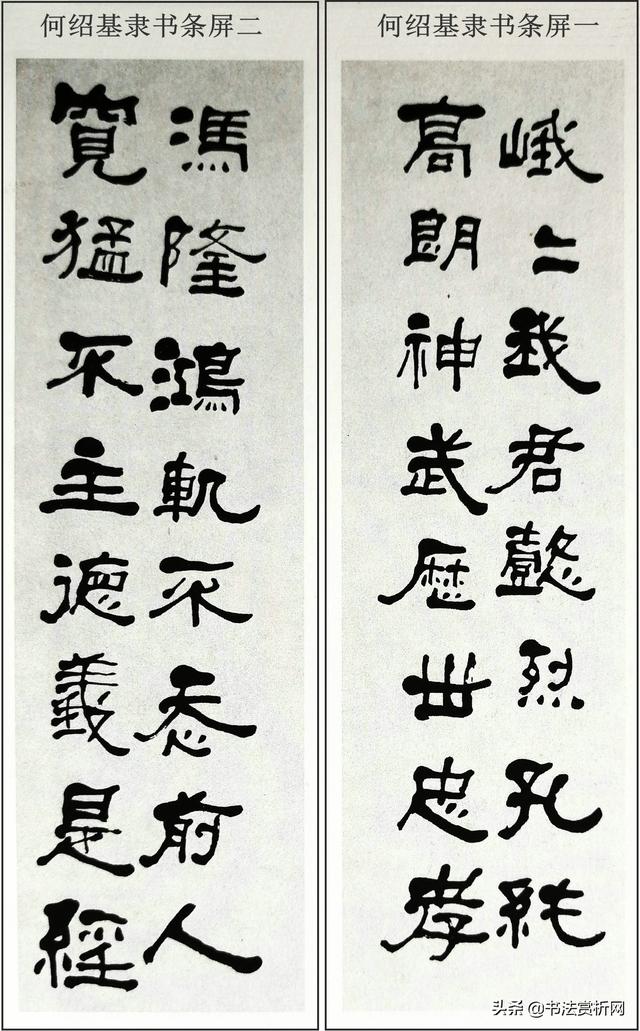 何绍基隶书条屏一
峨二我君懿烈孔純
高朗神武歷世忠孝
何绍基隶书条屏二
馮隆鴻軌不忝前人
寬猛不主德義是經
头条 @书法赏析网